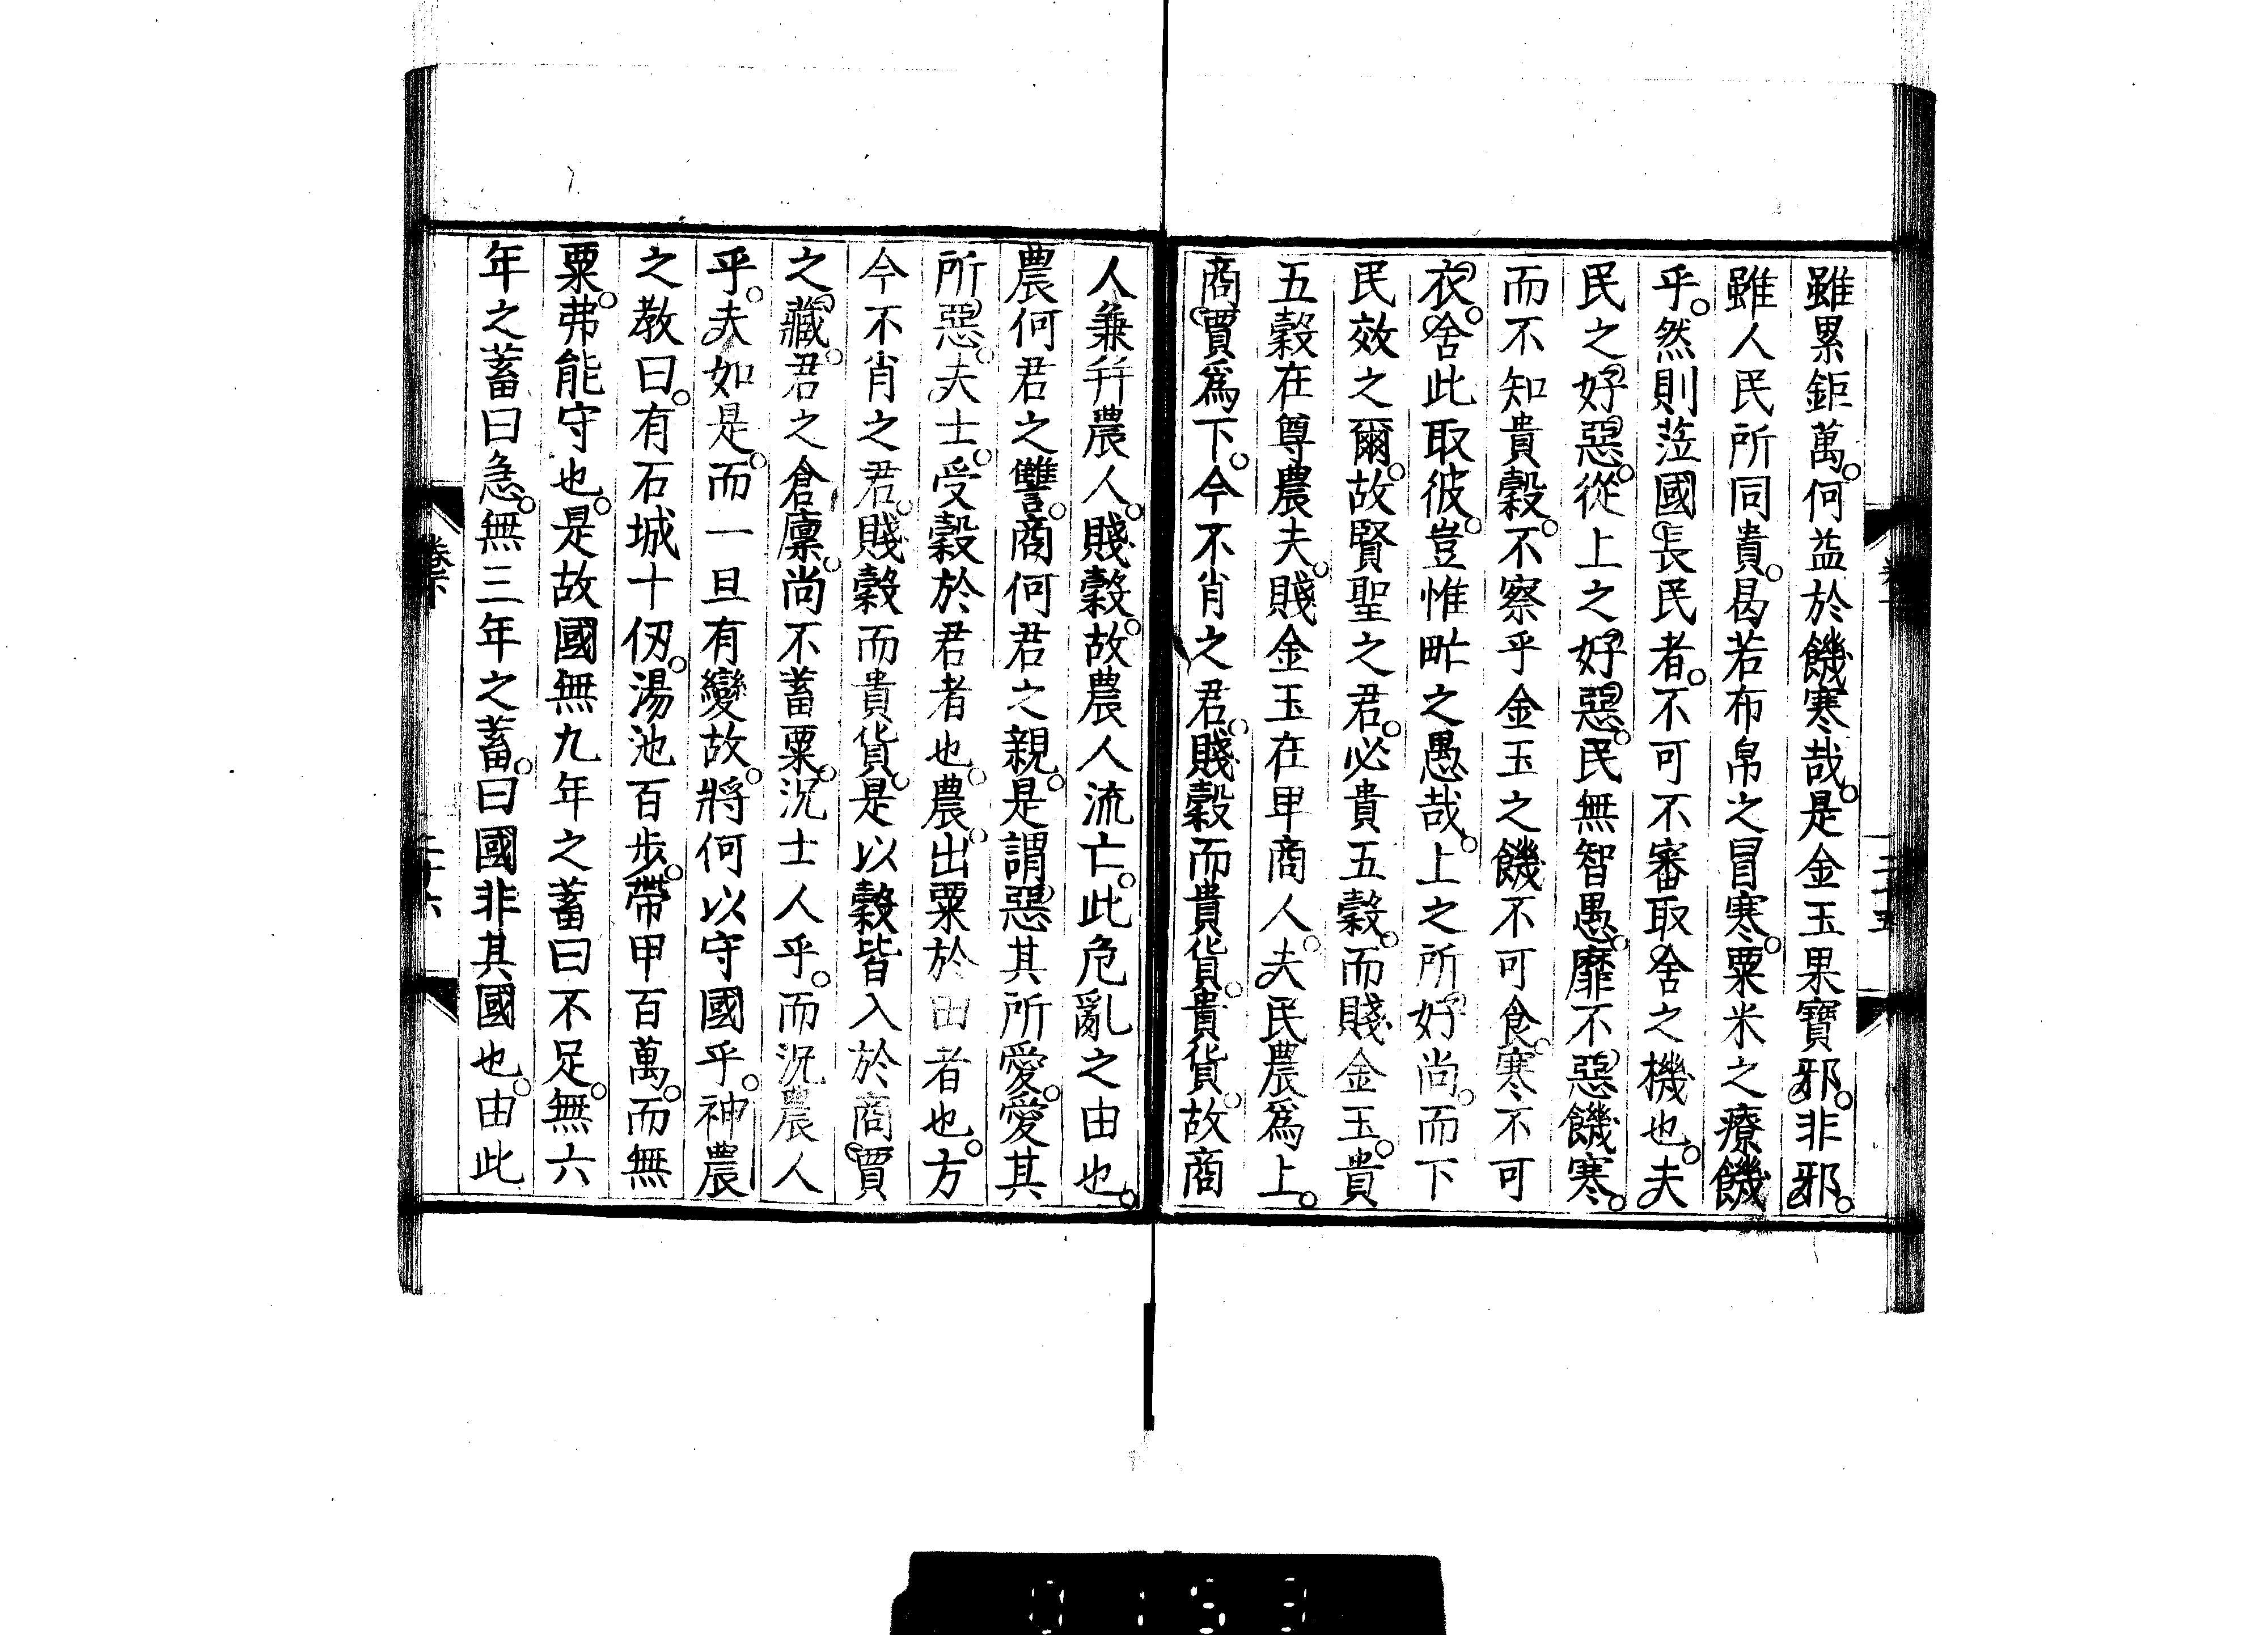 雖累鉅萬。何益於饑寒哉。是金玉果寶邪。非邪。
雖人民所同貴。曷若布帛之冒寒。粟米之療饑
乎。然則蒞國長民者。不可不審取舍之機也。夫
民之好惡。從上之好惡。民無智愚。靡不惡饑寒。
而不知貴穀。不察乎金玉之饑不可食。寒不可
衣。舍此取彼。豈惟甿之愚哉。上之所好尚。而下
民效之爾。故賢聖之君。必貴五穀。而賤金玉。貴
五穀在尊農夫。賤金玉在卑商人。夫民農爲上。
商賈爲下。今不肖之君。賤穀而貴貨。貴貨。故商
人兼幷農人。賤穀。故農人流亡。此危亂之由也。
農何君之讐。商何君之親。是謂惡其所愛。愛其
所惡。夫士。受穀於君者也。農。出粟於田者也。方
今不肖之君。賤穀而貴貨。是以穀皆入於商賈
之藏。君之倉廩。尚不蓄粟。況士人乎。而況農人
乎。夫如是。而一旦有變故。將何以守國乎。神農
之教曰。有石城十仭。湯池百步。帶甲百萬。而無
粟。弗能守也。是故國無九年之蓄曰不足。無六
年之蓄曰急。無三年之蓄。曰國非其國也。由此
卷下
二十六
0153